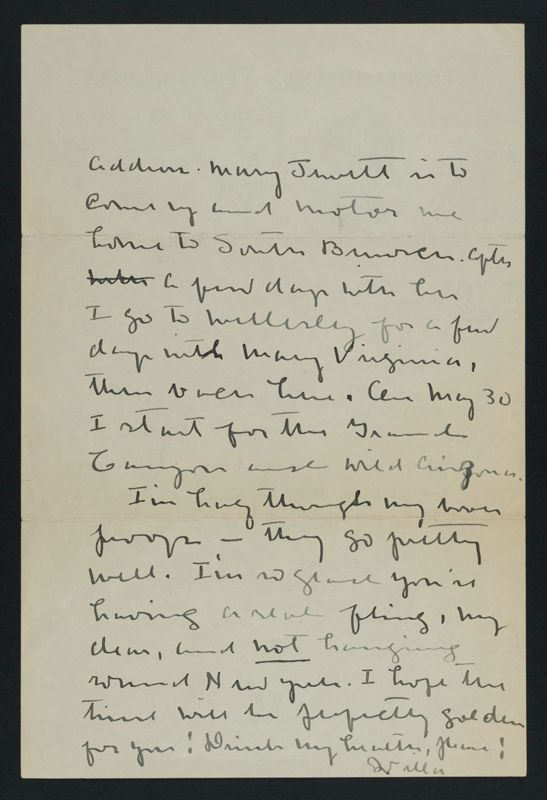 address. Mary Jewett is to
come up and motor me
home to South Berwick. After
a few days with her
I go to Wellesley for a few
days with Mary Virginia,
then back here. On May 30
I start for the Grand
Canyon and wild Arizona.
I'm half through my book
proofs — they go pretty
well. I'm so glad you're
having a real fling, my
dear, and not hanging
round New York. I hope the
time will be perfectly golden
for you! Drink my health, please!
Willa